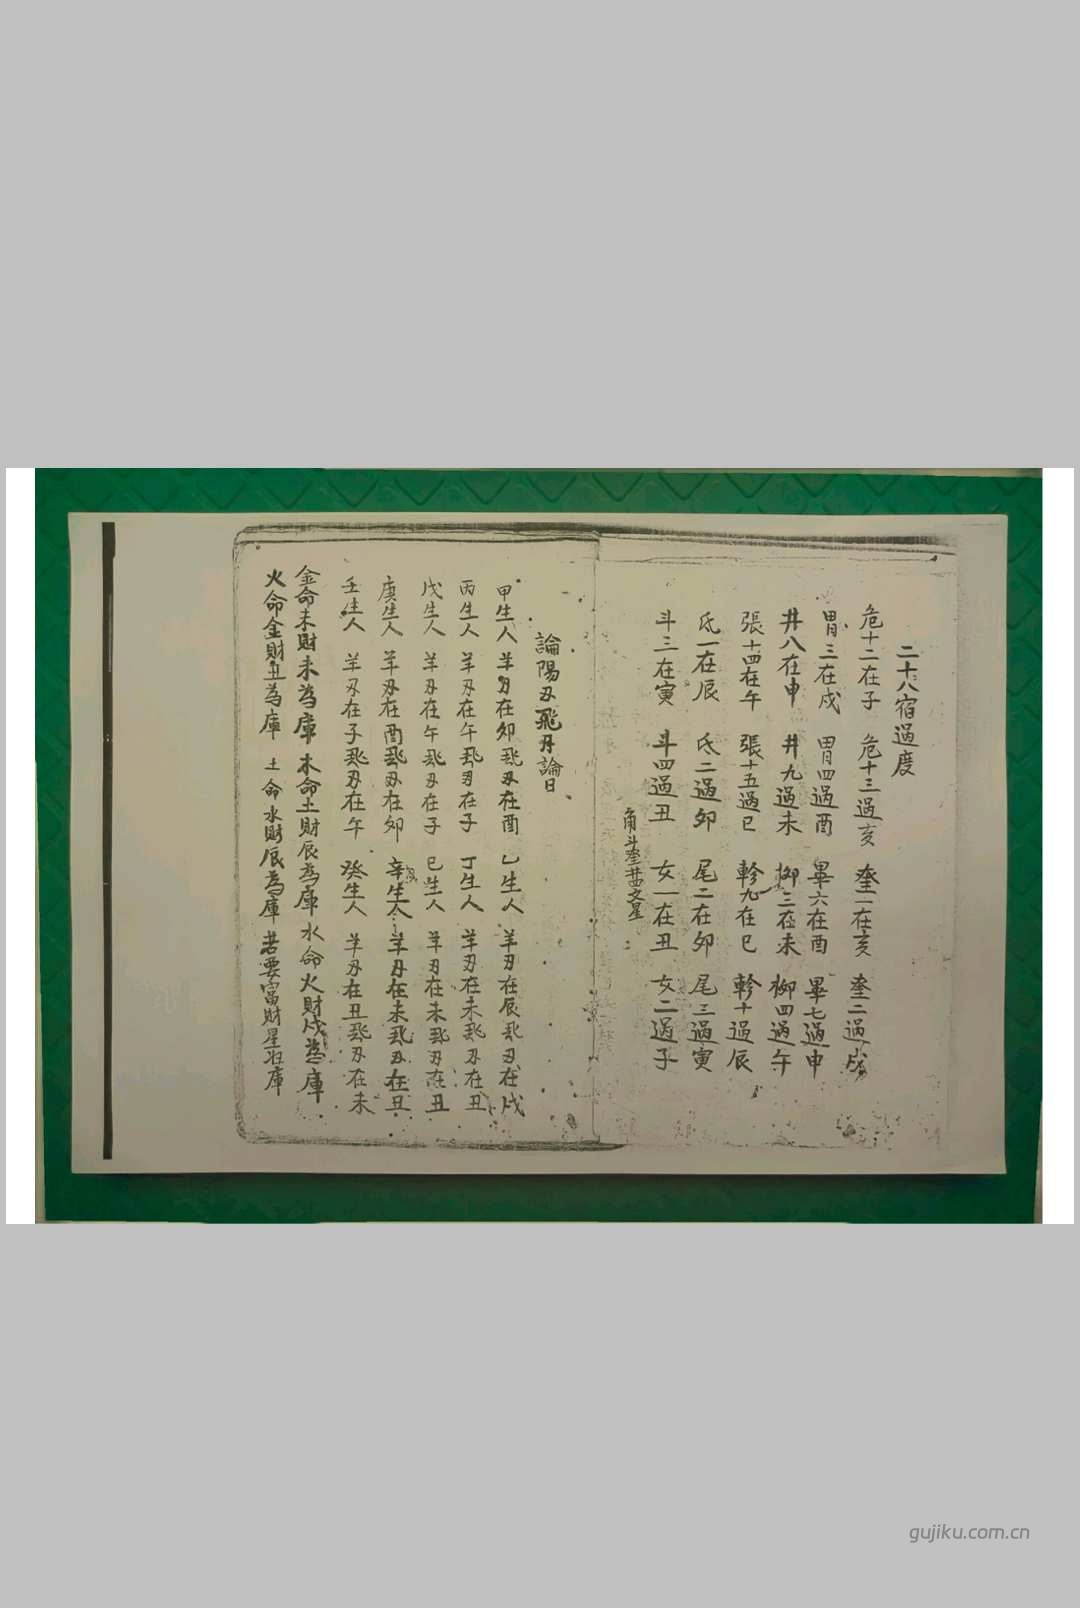 二十八宿過度
危十二在子　危十三過亥　奎一在亥　奎二過戌
胃三在戌　胃四過酉　畢六在酉　畢七過申
井八在申　井九過未　柳三在未　柳四過午
張十四在午　張十五過巳　軫九在巳　軫十過辰
氐一在辰　氐二過卯　尾二在卯　尾三過寅
斗三在寅　斗四過丑　女一在丑　女二過子
角斗奎井四文星
論陽刃飛刃論日
甲生人　羊刃在卯飛刃在酉　乙生人　羊刃在辰飛刃在戌
丙生人　羊刃在午飛刃在子　丁生人　羊刃在未飛刃在丑
戊生人　羊刃在午飛刃在子　巳生人　羊刃在未飛刃在丑
庚生人　羊刃在酉飛刃在卯　辛生人　羊刃在未飛刃在丑
壬生人　羊刃在子飛刃在午　癸生人　羊刃在丑飛刃在未
金命未財未為庫　木命土財辰為庫　水命火財戌為庫
火命金財丑為庫　土命水財辰為庫　若要富財星庫
gujiku.com.cn